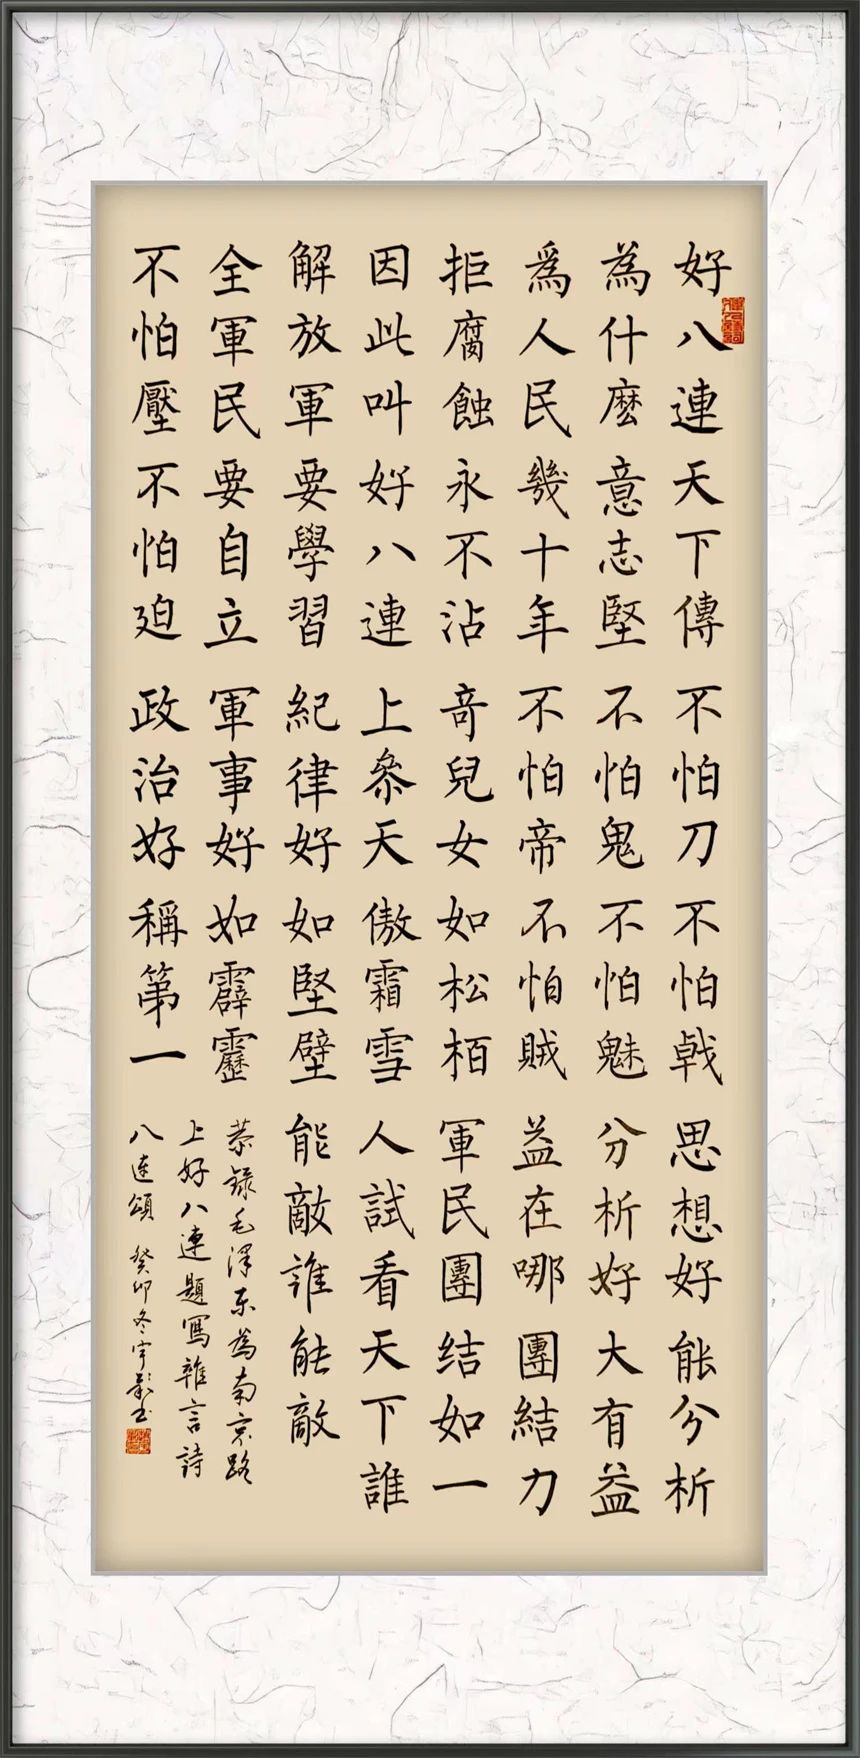 好八連天下傳
為什麼意志堅
爲人民幾十年
拒腐蝕永不沾
因此叫好八連
解放軍要學習
全軍民要自立
不怕壓不怕廹
不怕刀不怕戟
不怕鬼不怕魅
不怕帝不怕賊
奇兒女如松栢
上叅天傲霜雪
紀律好如堅壁
軍事好如霹靂
政治好稱第一
思想好能分析
分析好大有益
益在哪團結力
軍民團结如一
人試看天下誰
能敵誰能敵
恭録毛澤东為南京路
上好八連題寫雜言詩
八連頌 癸卯冬宇